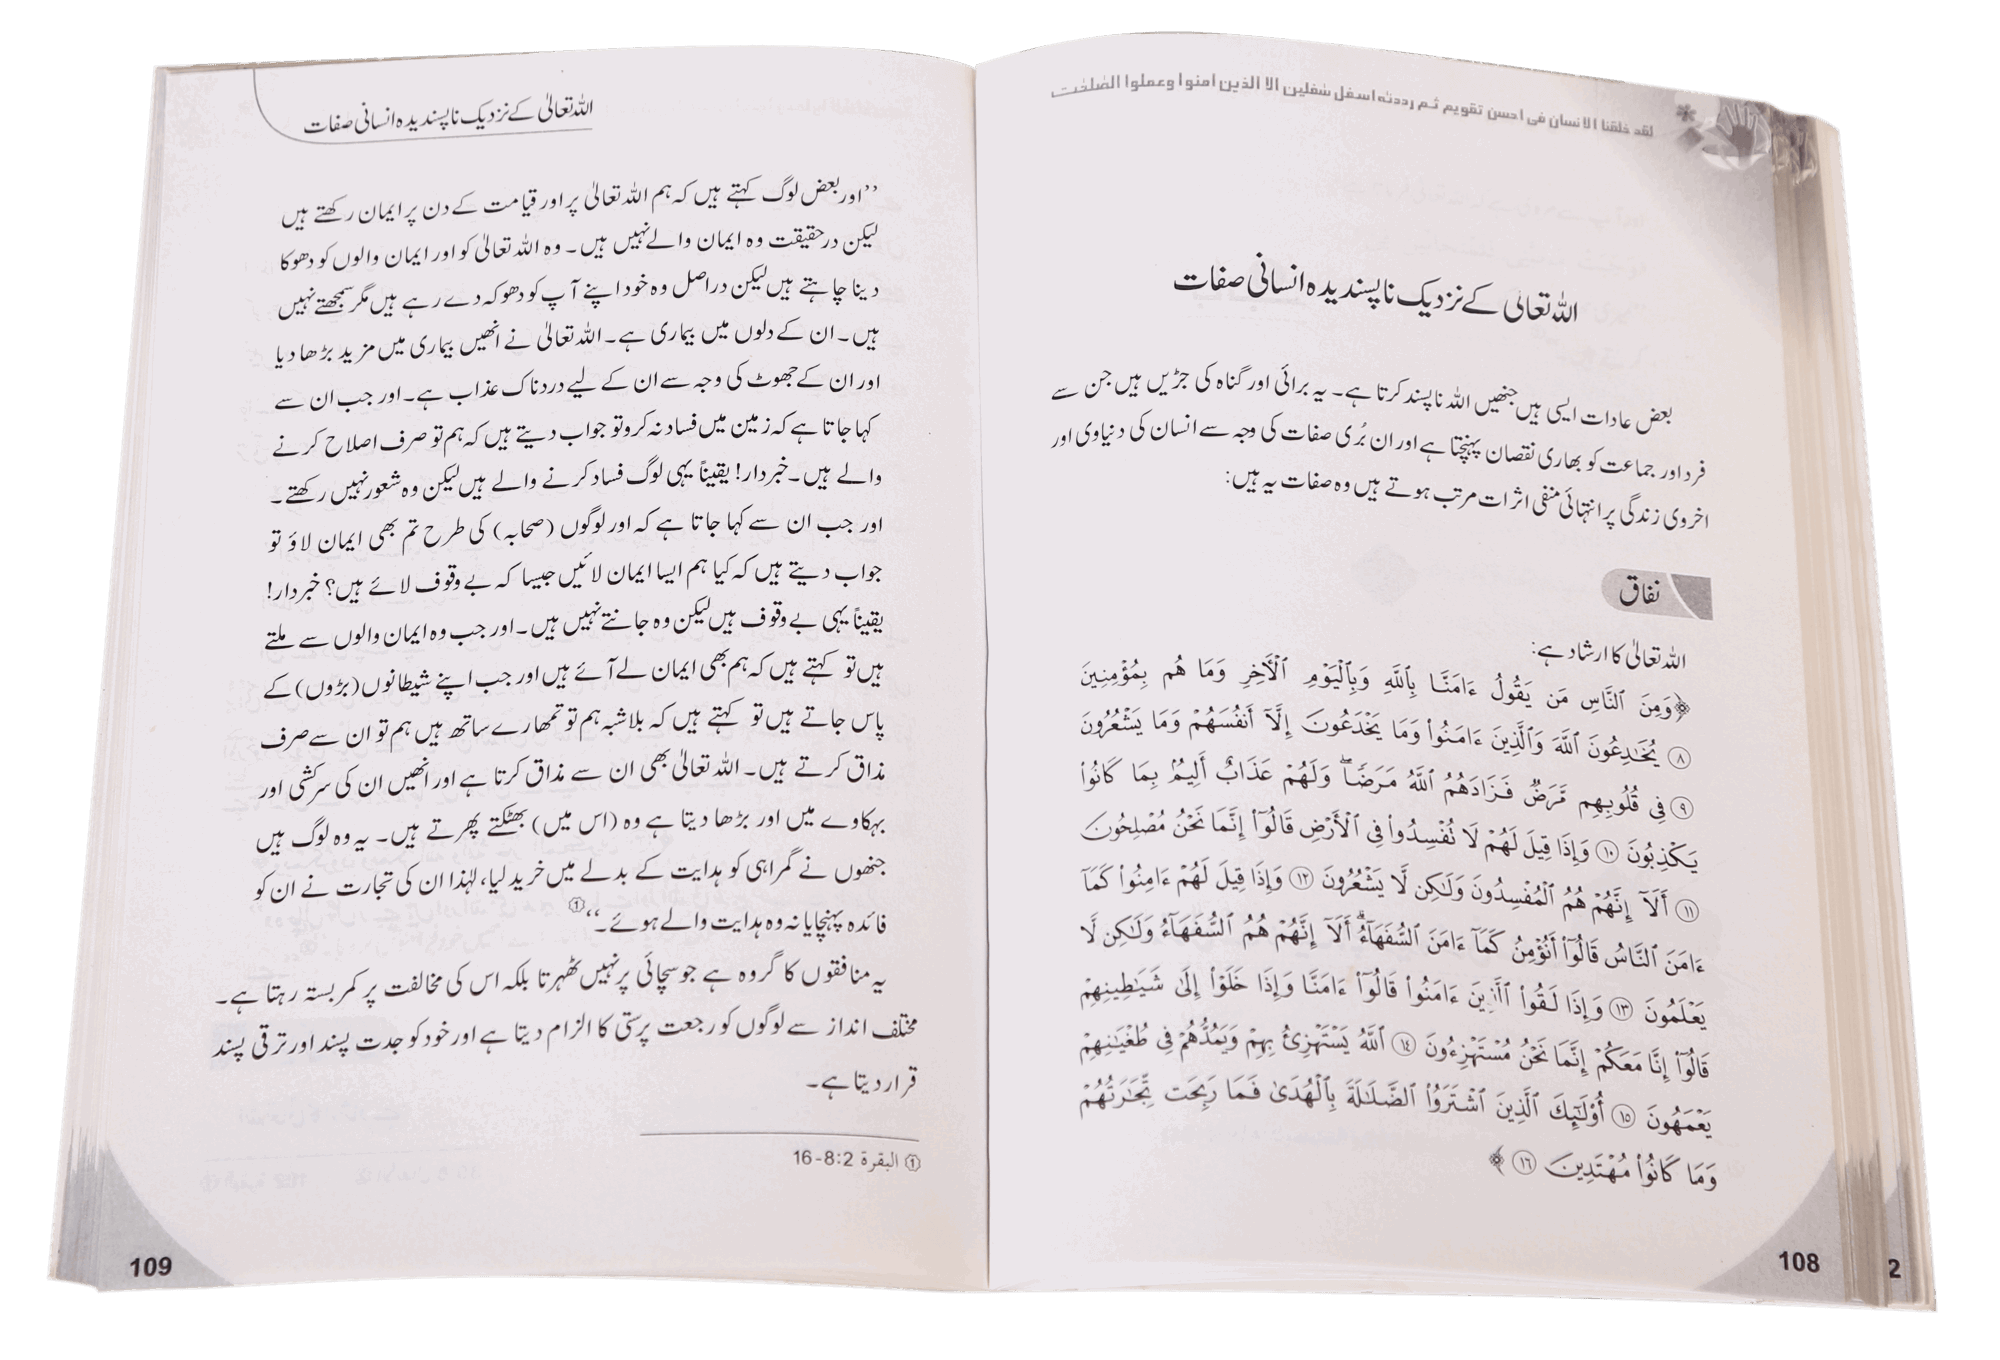 لقد خلقنا الانسان فی احسن تقویم ثم رددنٰہ اسفل سٰفلین الا الذین اٰمنوا وعملوا الصٰلحٰت
اللہ تعالیٰ کے نزدیک ناپسندیدہ انسانی صفات
بعض عادات ایسی ہیں جنھیں اللہ ناپسند کرتا ہے۔ یہ برائی اور گناہ کی جڑیں ہیں جن سے
فرد اور جماعت کو بھاری نقصان پہنچتا ہے اور ان بُری صفات کی وجہ سے انسان کی دنیاوی اور
اخروی زندگی پر انتہائی منفی اثرات مرتب ہوتے ہیں وہ صفات یہ ہیں:
نفاق
اللہ تعالیٰ کا ارشاد ہے:
﴿وَمِنَ ٱلنَّاسِ مَن يَقُولُ ءَامَنَّا بِٱللَّهِ وَبِٱلْيَوْمِ ٱلْأَخِرِ وَمَا هُم بِمُؤْمِنِينَ
٨ يُخَـٰدِعُونَ ٱللَّهَ وَٱلَّذِينَ ءَامَنُوا۟ وَمَا يَخْدَعُونَ إِلَّآ أَنفُسَهُمْ وَمَا يَشْعُرُونَ
٩ فِى قُلُوبِهِم مَّرَضٌ فَزَادَهُمُ ٱللَّهُ مَرَضًا ۖ وَلَهُمْ عَذَابٌ أَلِيمٌۢ بِمَا كَانُوا۟
يَكْذِبُونَ ١٠ وَإِذَا قِيلَ لَهُمْ لَا تُفْسِدُوا۟ فِى ٱلْأَرْضِ قَالُوٓا۟ إِنَّمَا نَحْنُ مُصْلِحُونَ
١١ أَلَآ إِنَّهُمْ هُمُ ٱلْمُفْسِدُونَ وَلَـٰكِن لَّا يَشْعُرُونَ ١٢ وَإِذَا قِيلَ لَهُمْ ءَامِنُوا۟ كَمَآ
ءَامَنَ ٱلنَّاسُ قَالُوٓا۟ أَنُؤْمِنُ كَمَآ ءَامَنَ ٱلسُّفَهَآءُ ۗ أَلَآ إِنَّهُمْ هُمُ ٱلسُّفَهَآءُ وَلَـٰكِن لَّا
يَعْلَمُونَ ١٣ وَإِذَا لَقُوا۟ ٱلَّذِينَ ءَامَنُوا۟ قَالُوٓا۟ ءَامَنَّا وَإِذَا خَلَوْا۟ إِلَىٰ شَيَـٰطِينِهِمْ
قَالُوٓا۟ إِنَّا مَعَكُمْ إِنَّمَا نَحْنُ مُسْتَهْزِءُونَ ١٤ ٱللَّهُ يَسْتَهْزِئُ بِهِمْ وَيَمُدُّهُمْ فِى طُغْيَـٰنِهِمْ
يَعْمَهُونَ ١٥ أُو۟لَـٰٓئِكَ ٱلَّذِينَ ٱشْتَرَوُا۟ ٱلضَّلَـٰلَةَ بِٱلْهُدَىٰ فَمَا رَبِحَت تِّجَـٰرَتُهُمْ
وَمَا كَانُوا۟ مُهْتَدِينَ ١٦﴾
108
2
اللہ تعالیٰ کے نزدیک ناپسندیدہ انسانی صفات
’’اور بعض لوگ کہتے ہیں کہ ہم اللہ تعالیٰ پر اور قیامت کے دن پر ایمان رکھتے ہیں
لیکن درحقیقت وہ ایمان والے نہیں ہیں۔ وہ اللہ تعالیٰ کو اور ایمان والوں کو دھوکا
دینا چاہتے ہیں لیکن دراصل وہ خود اپنے آپ کو دھوکہ دے رہے ہیں مگر سمجھتے نہیں
ہیں۔ ان کے دلوں میں بیماری ہے۔ اللہ تعالیٰ نے انھیں بیماری میں مزید بڑھا دیا
اور ان کے جھوٹ کی وجہ سے ان کے لیے دردناک عذاب ہے۔ اور جب ان سے
کہا جاتا ہے کہ زمین میں فساد نہ کرو تو جواب دیتے ہیں کہ ہم تو صرف اصلاح کرنے
والے ہیں۔ خبردار! یقیناً یہی لوگ فساد کرنے والے ہیں لیکن وہ شعور نہیں رکھتے۔
اور جب ان سے کہا جاتا ہے کہ اور لوگوں (صحابہ) کی طرح تم بھی ایمان لاؤ تو
جواب دیتے ہیں کہ کیا ہم ایسا ایمان لائیں جیسا کہ بے وقوف لائے ہیں؟ خبردار!
یقیناً یہی بے وقوف ہیں لیکن وہ جانتے نہیں ہیں۔ اور جب وہ ایمان والوں سے ملتے
ہیں تو کہتے ہیں کہ ہم بھی ایمان لے آئے ہیں اور جب اپنے شیطانوں (بڑوں) کے
پاس جاتے ہیں تو کہتے ہیں کہ بلاشبہ ہم تو تمھارے ساتھ ہیں ہم تو ان سے صرف
مذاق کرتے ہیں۔ اللہ تعالیٰ بھی ان سے مذاق کرتا ہے اور انھیں ان کی سرکشی اور
بہکاوے میں اور بڑھا دیتا ہے وہ (اس میں) بھٹکتے پھرتے ہیں۔ یہ وہ لوگ ہیں
جنھوں نے گمراہی کو ہدایت کے بدلے میں خرید لیا، لہٰذا ان کی تجارت نے ان کو
فائدہ پہنچایا نہ وہ ہدایت والے ہوئے۔‘‘①
یہ منافقوں کا گروہ ہے جو سچائی پر نہیں ٹھہرتا بلکہ اس کی مخالفت پر کمربستہ رہتا ہے۔
مختلف انداز سے لوگوں کو رجعت پرستی کا الزام دیتا ہے اور خود کو جدت پسند اور ترقی پسند
قرار دیتا ہے۔
① البقرة 2:8-16
109